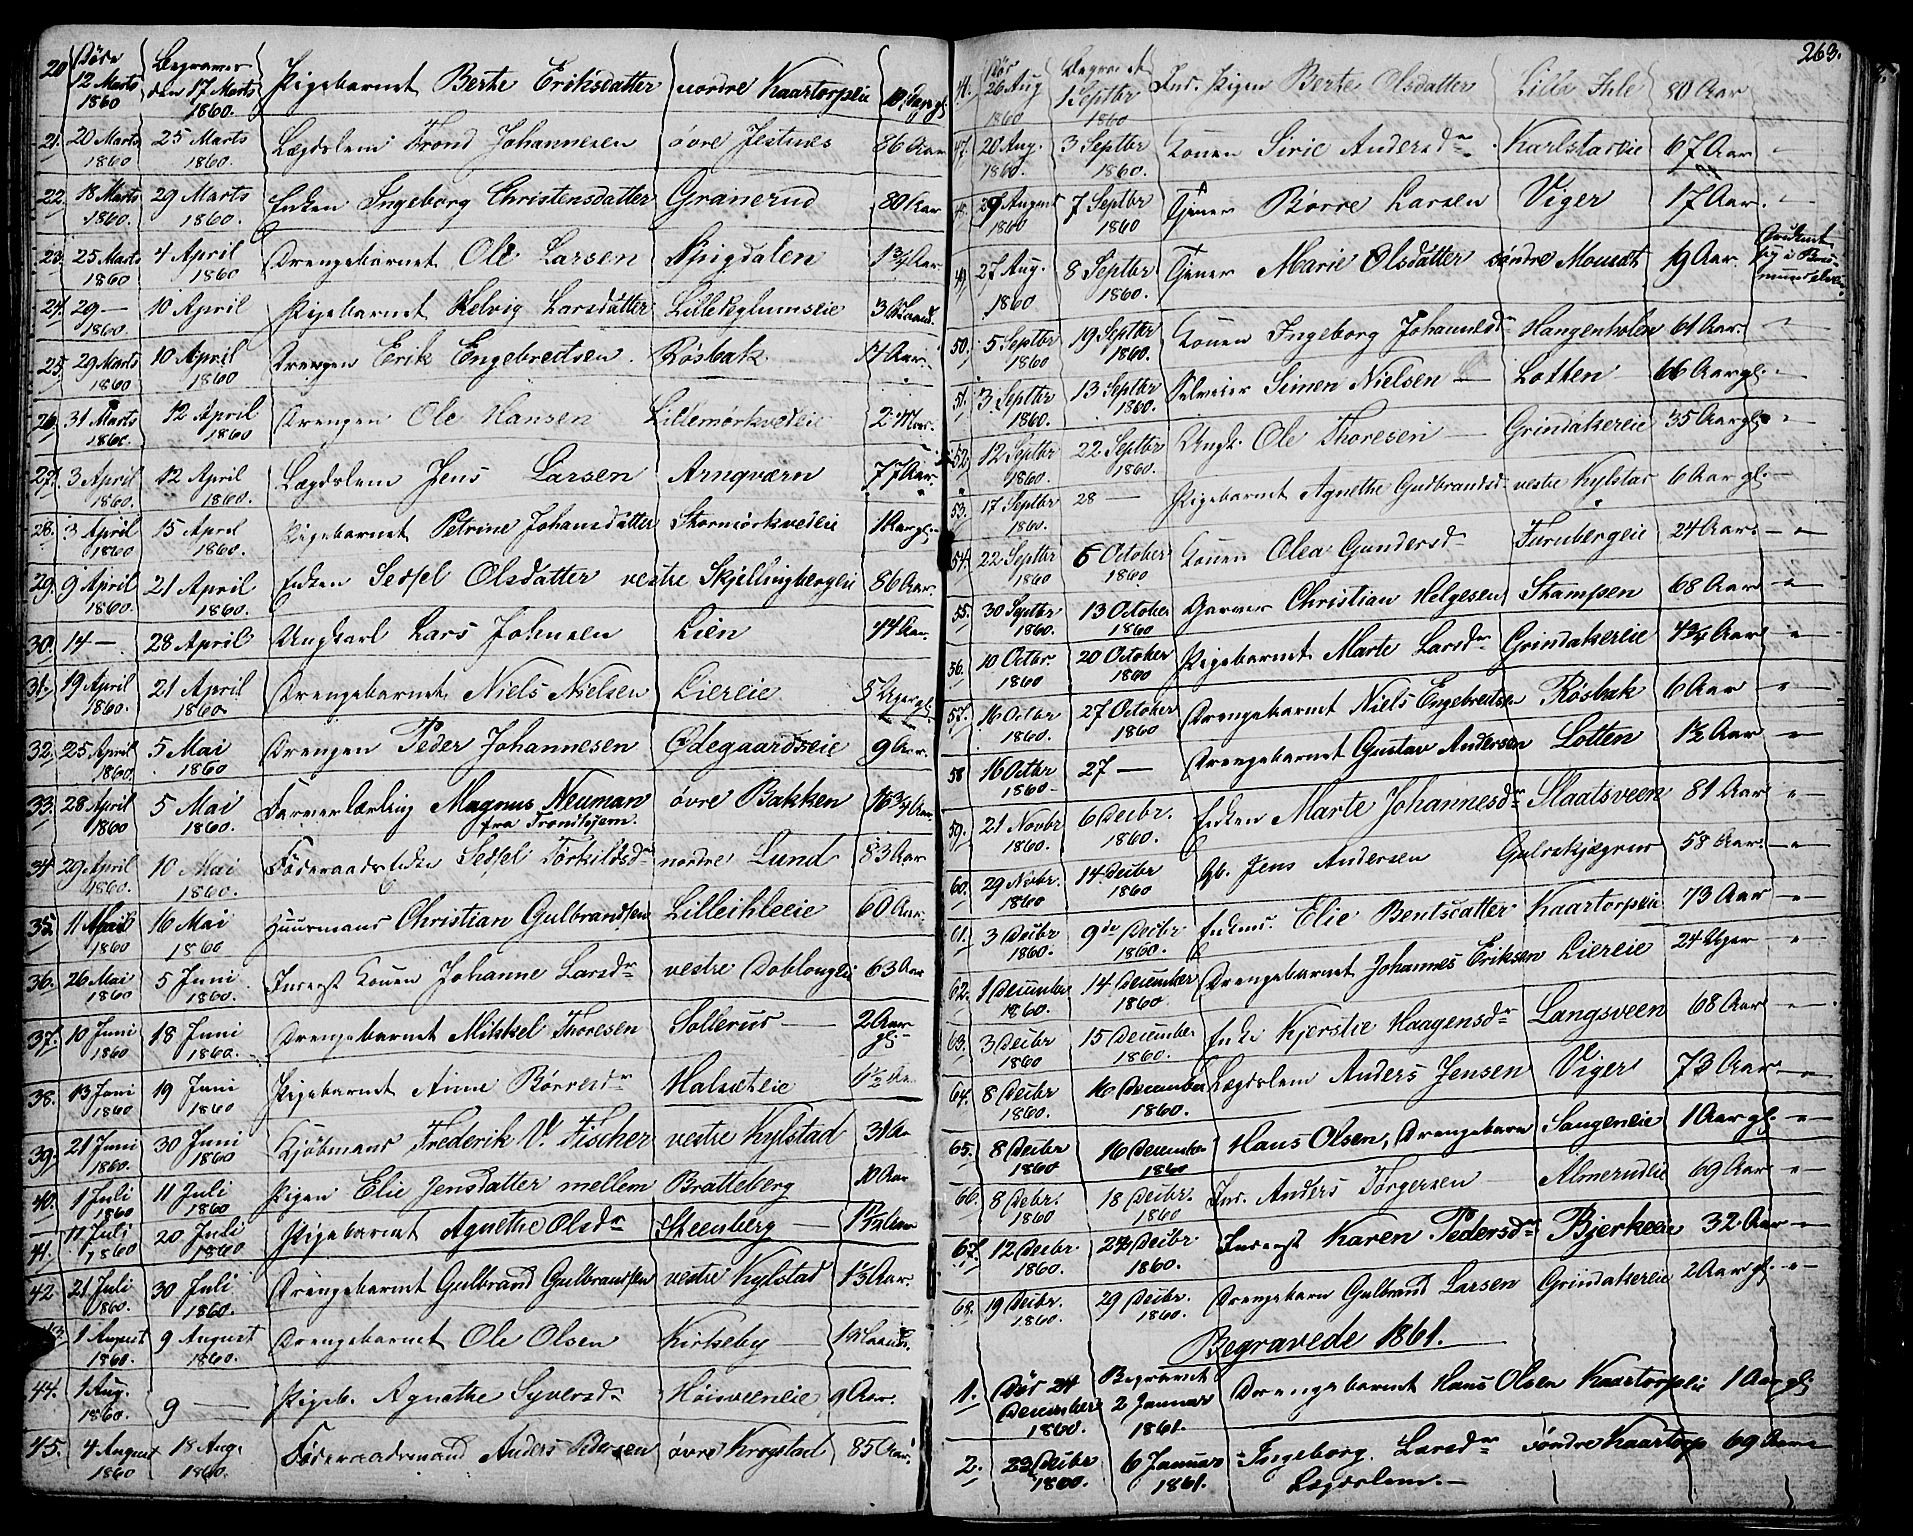 20 Døde 12 Marts 1860 Begraven den 17 Marts 1860. Pigebarnet Berte Eriksdatter nordre Kaartorpeie
21. 20 Marts 1860 25 Marts 1860. Lægdslem Trond Johannesen øvre Jestnes 86 Aar
22 18 Marts 1860. 29 Marts 1860. Enken Ingeborg Christensdatter Granerud 80 Aar
23. 25 Marts 1860 4 April 1860 Drengebarnet Ole Larsen Spigdalen 1 3/4 Aar
24. 29 — 1860. 10 April Pigebarnet Helvig Larsdatter 3 Maand.
25. 29 Marts 1860 10 April 1860 Drengen Erik Engebredtsen. Røsbak 14 Aar.
26. 31 Marts 1860. 12 April 1860 Drengen Ole Hansen Lillemørkvedeie
27. 3 April 1860. 12 April 1860. Lægdslem Jens Larsen Arnqværn 77 Aar.
28. 3 April 1860 15 April 1860. Pigebarnet Petrine Johansdatter Stormørkvedeie 1 Aar gl.
29. 9 April 1860. 21 April 1860. Enken Sedsel Olsdatter vestre Skjellingbergeie 86 Aar.
30. 14 — 28 April Ungkarl Lars Johnsen Lien 44 Aar.
31. 19 April 1860. 21 April 1860 Drengebarnet Niels Nielsen Liereie 5 Uger gl.
32. 25 April 1860. 5 Mai 1860 Drengen Peder Johannesen Ødegaardseie 9 Aar.
33. 28 April 1860 5 Mai 1860. Farverlærling Magnus Neuman øvre Bakken 16 3/4 Aar
fra Trondhjem.
34 29 April 1860. 10 Mai 1860. Føderaadsenke Sedsel Torkildsdr nordre Lund 83 Aar
35. 11 1860 16 Mai 1860 Huusmand Christian Gulbrandsen Lilleihleeie 60 Aar.
36. 26 Mai 1860 5 Juni 1860. Inderst Konen Johanne Larsdr vestre Doblougeie 63 Aar
37. 10 Juni 1860 18 Juni 1860. Drengebarnet Mikkel Thoresen Sollerud — 2 Aar gl.
38. 13 Juni 1860 19 Juni 1860 Pigebarnet Anne Børresdr Halseteie 1 1/2 Aar
39. 21 Juni 1860. 30 Juni 1860 Kjøbmand Frederik V. Fischer vestre Kylstad 31 Aar
40. 1 Juli 1860 11 Juli 1860 Pigen Elie Jensdatter mellem Bratteberg 10 Aar
41. 11 Juli 1860 20 Juli 1860 Pigebarnet Agnethe Olsdr Steenberg —
42 21 Juli 1860. 30 Juli 1860. Drengebarnet Gulbrand Gulbrandsen vestre Kylstad 1 1/3 Aar.
43. 1 August 1860. 9 August 1860. Drengebarnet Ole Olsen Kirkeby — 1 Maaned.
44. 1 Aug. 1860. 9 — Pigeb. Agnethe Syversdr Høisveeneie 9 Aar.
45. 4 August 1860 18 Aug. 1860. Føderaadsmand Anders Pedersen øvre Krogstad 85 Aar
263.
Død 26 Aug 1860 Begravet 1 Septbr 1860 Ind. Pigen Berte Olsdatter Lille Ihle 80 Aar
47. 20 Aug. 1860. 3 Septbr 1860. Konen Sirie Andersdr Karlstadeie 67 Aar —
29 August 1860 7 Septbr 1860 Tjener Børre Larsen Viger 17 Aar. —
49. 27 Aug. 1860 8 Septbr 1860. Tjener Marie Olsdatter søndre Mousdt 19 Aar
50. 5 Septbr 1860 19 Septbr 1860. Konen Ingeborg Johannesdr Hangenholen 61 Aar. —
51. 3 Septbr 1860. 13 Septbr 1860. Selveier Simen Nielsen — Lotten 66 Aar gl. —
52. 12 Septbr 1860. 22 Septbr 1860. Ungk. Ole Thoresen — Grindakereie 35 Aar gl. —
53. 17 Septbr 1860. 28 — Pigebarnet Agnethe Gudbrandsd vestre Kylstad 6 Aar gl. —
54. 22 Septbr 1860 6 October 1860 Konen Olea Gundersd Furubergeie 24 Aar. —
55. 30 Septbr 1860. 13 October 1860 Garver Christian Helgesen Stampen 68 Aar —
56. 10 Octbr 1860 20 October 1860 Pigebarnet Marte Larsdr Grindakereie 4 3/4 Aar —
57. 16 Octbr 1860. 27 October 1860 Drengebarnet Niels Engebredtsen Røsbak 6 Aar —
58 16 Octbr 1860. 27 — Drengebarnet Gustav Andersen Lotten 1 1/2 Aar —
59. 21 Novbr 1860. 6 Decbr. 1860. Enken Marte Johannesdr Slaatsveen 81 Aar —
60. 29 Novbr. 1860 14. Decbr 1860 Gb. Jens Andersen 58 Aar. —
61. 3 Decbr 1860. 9de Decbr. 1860. Elie Bentsdatter Kaartorpeie 73 Aar —
62. 1 December 1860. 14 December 1860 Drengebarnet Johannes Eriksen Liereie 24 Uger —
63. 3 Decbr 1860 15 December 1860. Enke Kjerstie Haagensdr Langsveen 68 Aar —
64. 8 Decbr 1860. 16 December 1860. Lægdslem Anders Jensen Viger 73 Aar —
65. 8 Decbr 1860 16 December 1860 Hans Olsen, Drengebarn Sangeneie 1 Aar gl. —
66. 8 Decbr. 1860 18 Decbr. 1860 Ind. Anders Torgersen — Almerudeie 69 Aar —
67. 12 Decbr. 1860. 24 Decbr. 1860. Inderst Karen Pedersdr Bjerkeeie 32 Aar —
68. 19 Decbr. 1860. 29 Decbr. 1860. Drengebarn Gulbrand Larsen Grindakereie 2 Aar gl. —
Begravede 1861.
1. Død 24 December 1860. Begravet 2 Januar 1861. Drengebarnet Hans Olsen Kaartorpeie 1 Aar gl.
2. 23 Decbr 1860. 6 Januar 1861. Ingeborg Larsdr søndre Kaartorp 69 Aar —
Lægdslem. —